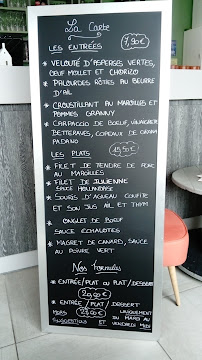 La Carte
LES ENTRÉES 7,90€
* VELOUTÉ D'ASPERGES VERTES,
OEUF MOLLET ET CHORIZO
* PALOURDES RÔTIES AU BEURRE
D'AIL
* CROUSTILLANT AU MAROILLES ET
POMMES GRANNY
* CARPACCIO DE BOEUF, VINAIGRETTE
BETTERAVES, COPEAUX DE GRANA
PADANO
LES PLATS 15,90€
* FILET DE TENDRE DE PORC
AU MAROILLES
* FILET DE JULIENNE
SAUCE HOLLANDAISE
* SOURIS D'AGNEAU CONFITE
ET SON JUS AIL ET THYM
* ONGLET DE BOEUF
SAUCE ECHALOTTES
* MAGRET DE CANARD, SAUCE
AU POIVRE VERT
Nos formules
* ENTRÉE/PLAT OU PLAT/DESSERT
* ENTRÉE/PLAT/DESSERT
HORS
SUGGESTIONS
UNIQUEMENT
DU MARDI AU
ET VENDREDI MIDI